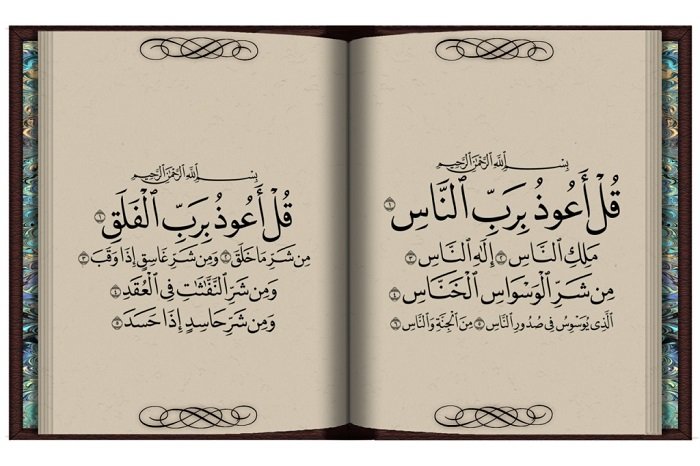 بِسْمِ ٱللَّهِ ٱلرَّحْمَٰنِ ٱلرَّحِيمِ
قُلْ أَعُوذُ بِرَبِّ ٱلنَّاسِ ١
مَلِكِ ٱلنَّاسِ ٢ إِلَٰهِ ٱلنَّاسِ ٣
مِن شَرِّ ٱلْوَسْوَاسِ ٱلْخَنَّاسِ ٤
ٱلَّذِى يُوَسْوِسُ فِى صُدُورِ ٱلنَّاسِ ٥ مِنَ ٱلْجِنَّةِ وَٱلنَّاسِ ٦
بِسْمِ ٱللَّهِ ٱلرَّحْمَٰنِ ٱلرَّحِيمِ
قُلْ أَعُوذُ بِرَبِّ ٱلْفَلَقِ ١
مِن شَرِّ مَا خَلَقَ ٢ وَمِن شَرِّ غَاسِقٍ إِذَا وَقَبَ ٣
وَمِن شَرِّ ٱلنَّفَّٰثَٰتِ فِى ٱلْعُقَدِ ٤
وَمِن شَرِّ حَاسِدٍ إِذَا حَسَدَ ٥